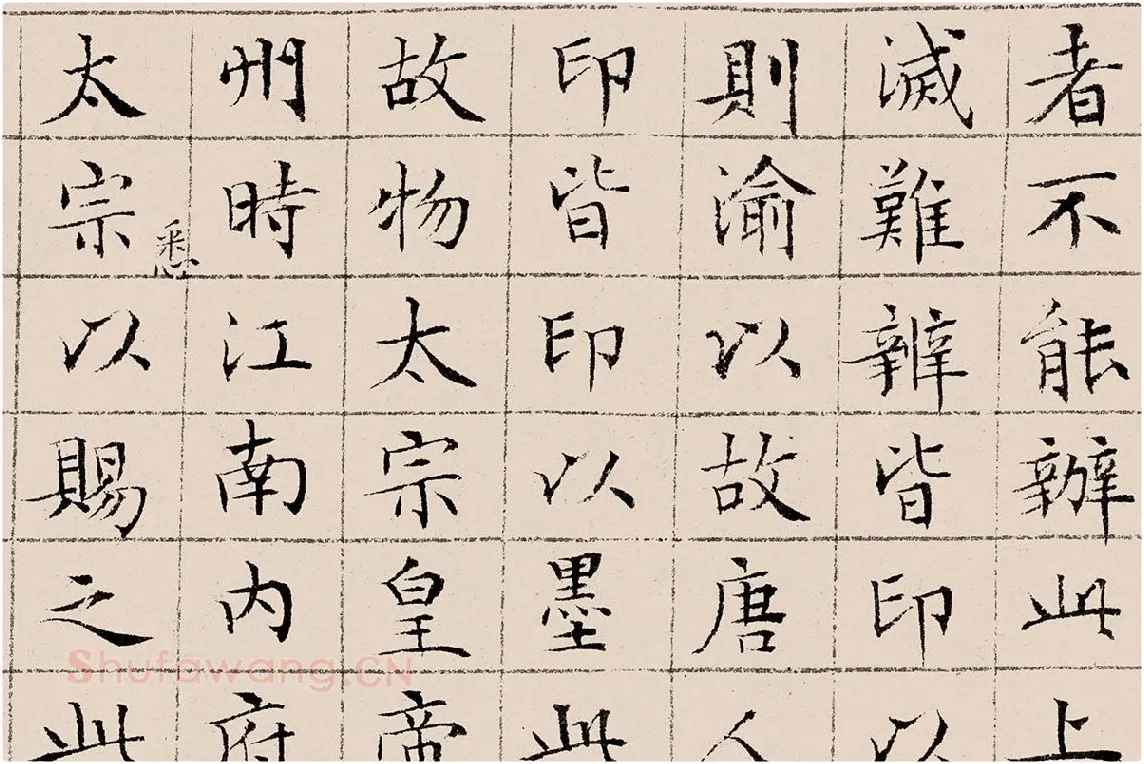 者不能辦此上
滅難辨皆印以
則渝以故唐人
印皆印以墨此
故物太宗皇帝
州時江南内府
悉
太宗以賜之此
Shufawang.CN